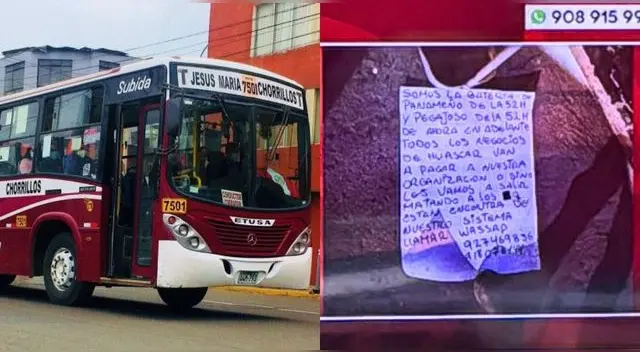 Subida
JESUS MARIA 7501 CHORRILLOS
CHORRILLOS
7501
ETUSA
908 915 99
SOMOS LA BATERIA DE
PANAMEÑO DE LA 52H
Y PEGAJOSO DE LA 52H
DE AHORA EN ADELANTE
TODOS LOS NEGOCIOS
DE HUASCAR VAN
A PAGAR A NUESTRA
ORGANIZACION O SINO
LES VAMOS A SALIR
MATANDO A LOS QE
ESTEN ENCONTRA DE
NUESTRO SISTEMA
LLAMAR WASSAP
927469836